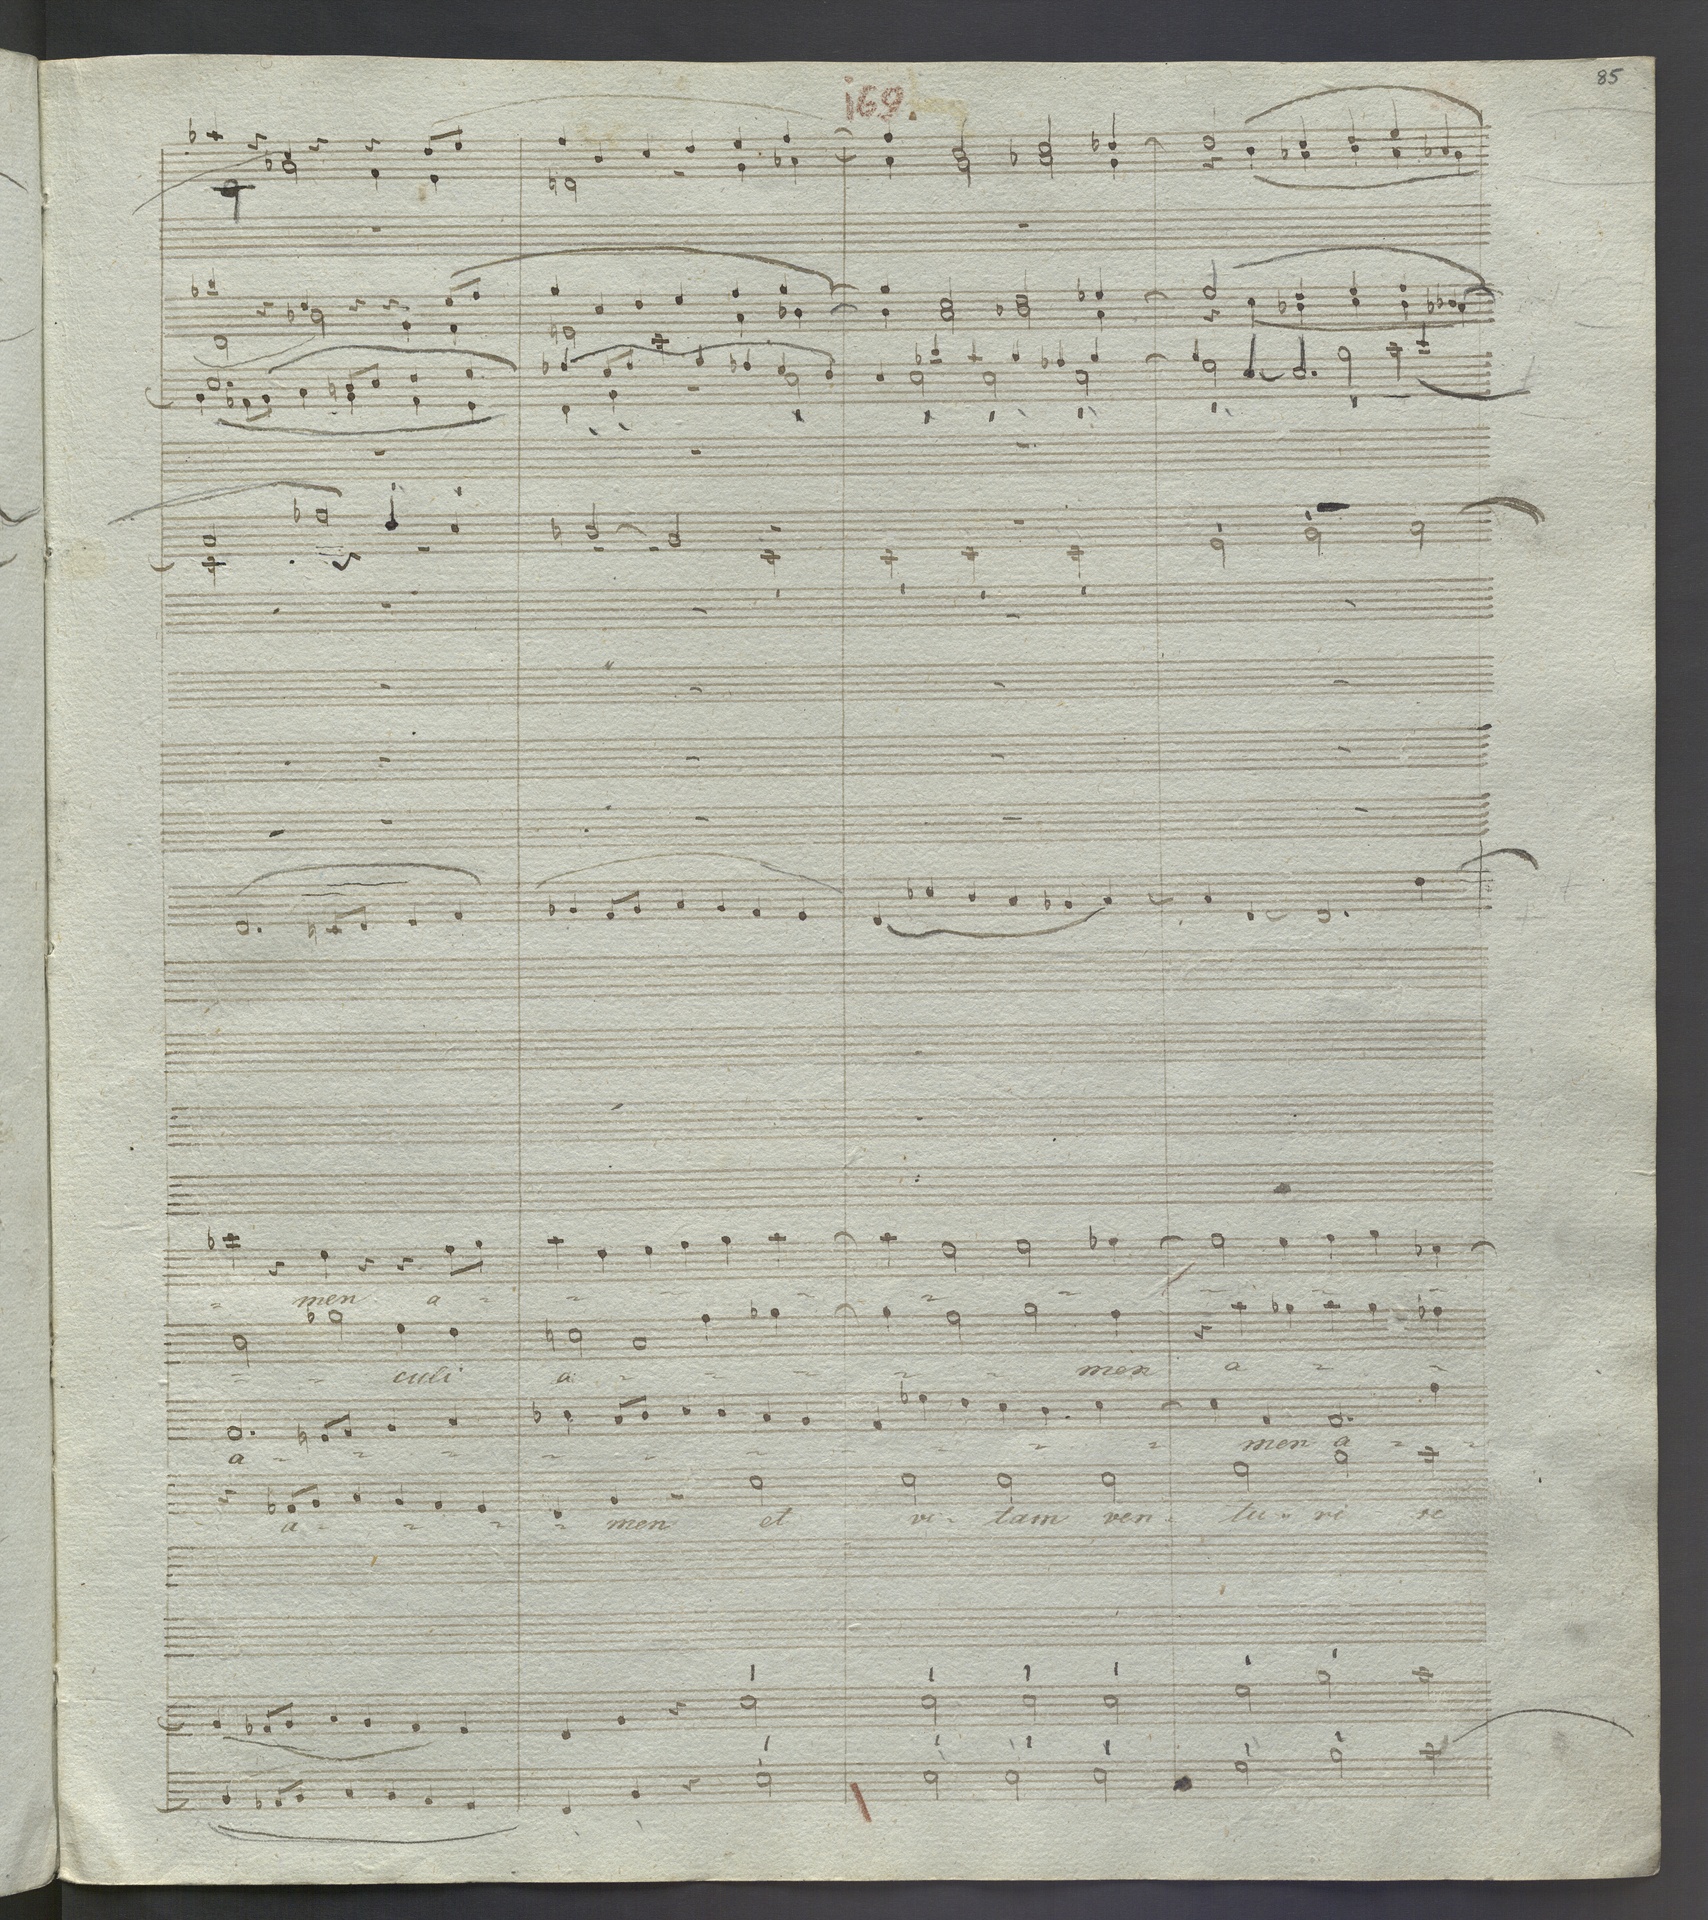 85
169.
men a
culi a men a
a men a
a men et vi tam ven tu ri se